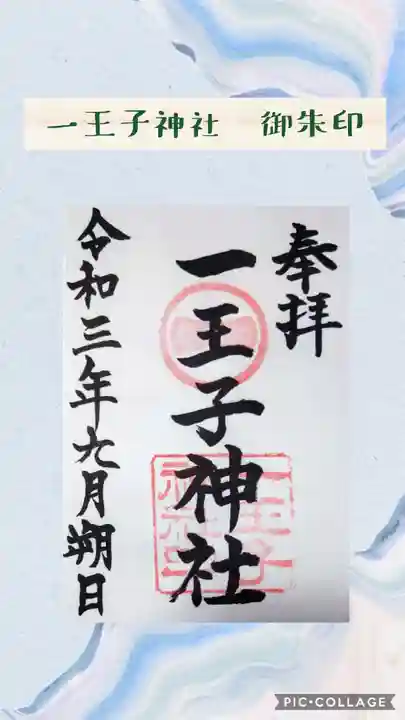 一王子神社 御朱印
奉拝
一王子神社
令和三年六月朔日
一王子
神社
PIC•COLLAGE